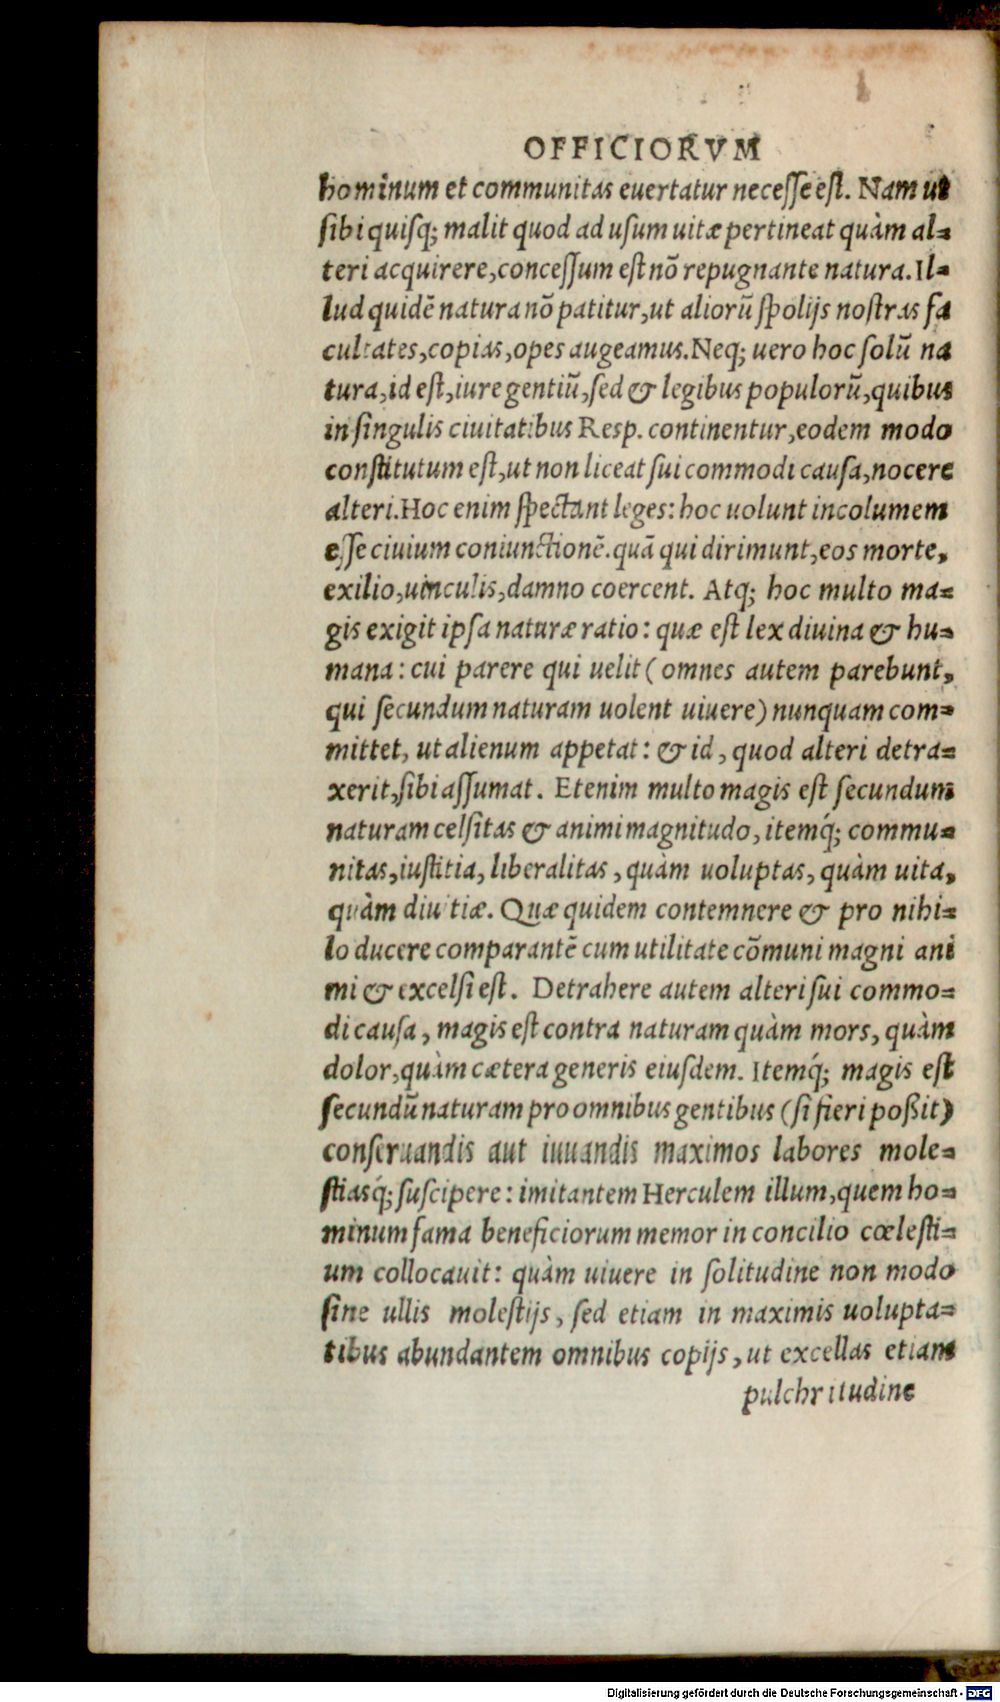 OFFICIORVM
hominum et communitas euertatur necesse est. Nam ut
sibi quisq; malit quod ad usum uitæ pertineat quàm al=
teri acquirere, concessum est nõ repugnante natura. Il=
lud quidẽ natura nõ patitur, ut aliorũ spolijs nostras fa
cultates, copias, opes augeamus. Neq; uero hoc solũ na
tura, id est, iure gentiũ, sed & legibus populorũ, quibus
in singulis ciuitatibus Resp. continentur, eodem modo
constitutum est, ut non liceat sui commodi causa, nocere
alteri. Hoc enim spectant leges: hoc uolunt incolumem
esse ciuium coniunctionẽ. quã qui dirimunt, eos morte,
exilio, uinculis, damno coercent. Atq; hoc multo ma=
gis exigit ipsa naturæ ratio: quæ est lex diuina & hu=
mana: cui parere qui uelit (omnes autem parebunt,
qui secundum naturam uolent uiuere) nunquam com=
mittet, ut alienum appetat: & id, quod alteri detra=
xerit, sibi assumat. Etenim multo magis est secundum
naturam celsitas & animi magnitudo, itemq́; commu=
nitas, iustitia, liberalitas, quàm uoluptas, quàm uita,
quàm diuitiæ. Quæ quidem contemnere & pro nihi=
lo ducere comparantẽ cum utilitate cõmuni magni ani
mi & excelsi est. Detrahere autem alteri sui commo=
di causa, magis est contra naturam quàm mors, quàm
dolor, quàm cætera generis eiusdem. Itemq́; magis est
secundũ naturam pro omnibus gentibus (si fieri poßit)
conseruandis aut iuuandis maximos labores mole=
stiasq́; suscipere: imitantem Herculem illum, quem ho=
minum fama beneficiorum memor in concilio cœlesti=
um collocauit: quàm uiuere in solitudine non modo
sine ullis molestijs, sed etiam in maximis uolupta=
tibus abundantem omnibus copijs, ut excellas etiam
pulchritudine
Digitalisierung gefördert durch die Deutsche Forschungsgemeinschaft - DFG